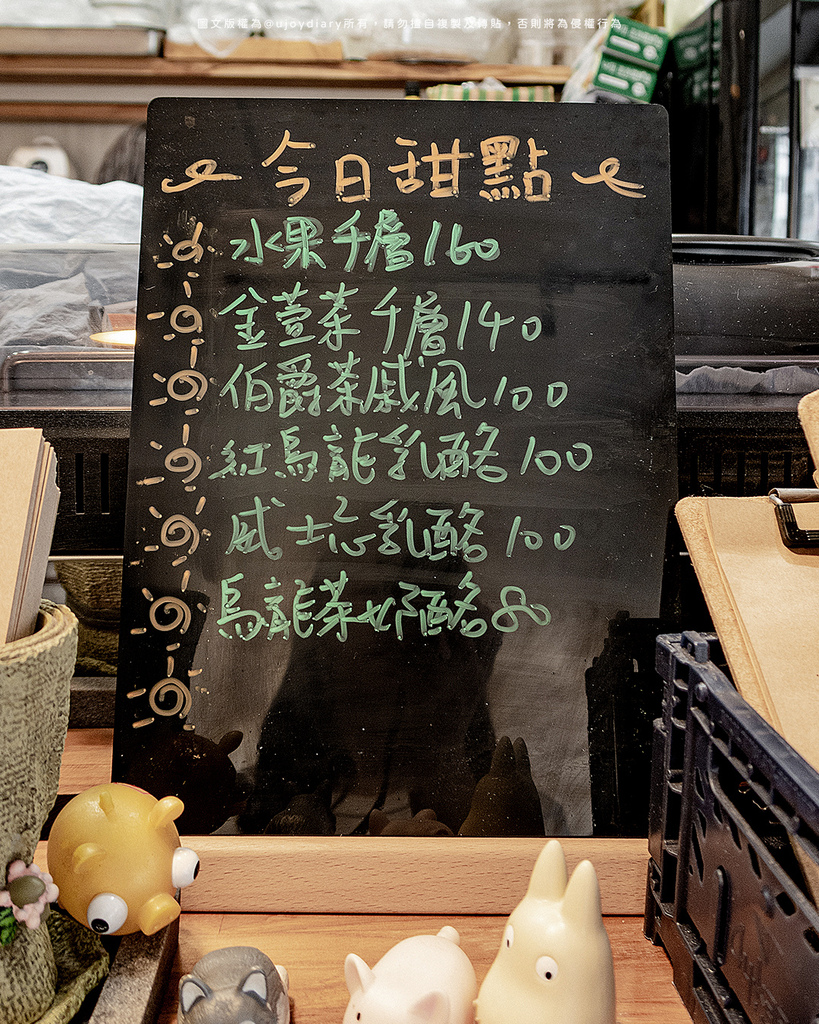 圖文版權為@ujoydiary所有，請勿擅自複製及轉貼，否則將為侵權行為
今日甜點
水果千層160
金萱茶千層140
伯爵茶戚風100
紅烏龍乳酪100
威士忌乳酪100
烏龍茶奶酪80